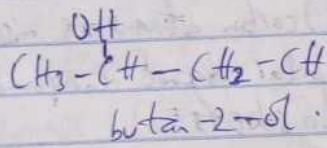 OH
CH3-CH-CH2-CH
butan-2-ol.